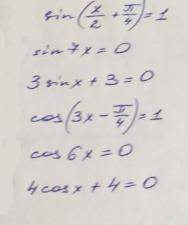 sin(x/2 + π/4) = 1
sin 7x = 0
3 sin x + 3 = 0
cos(3x − π/4) = 1
cos 6x = 0
4 cos x + 4 = 0